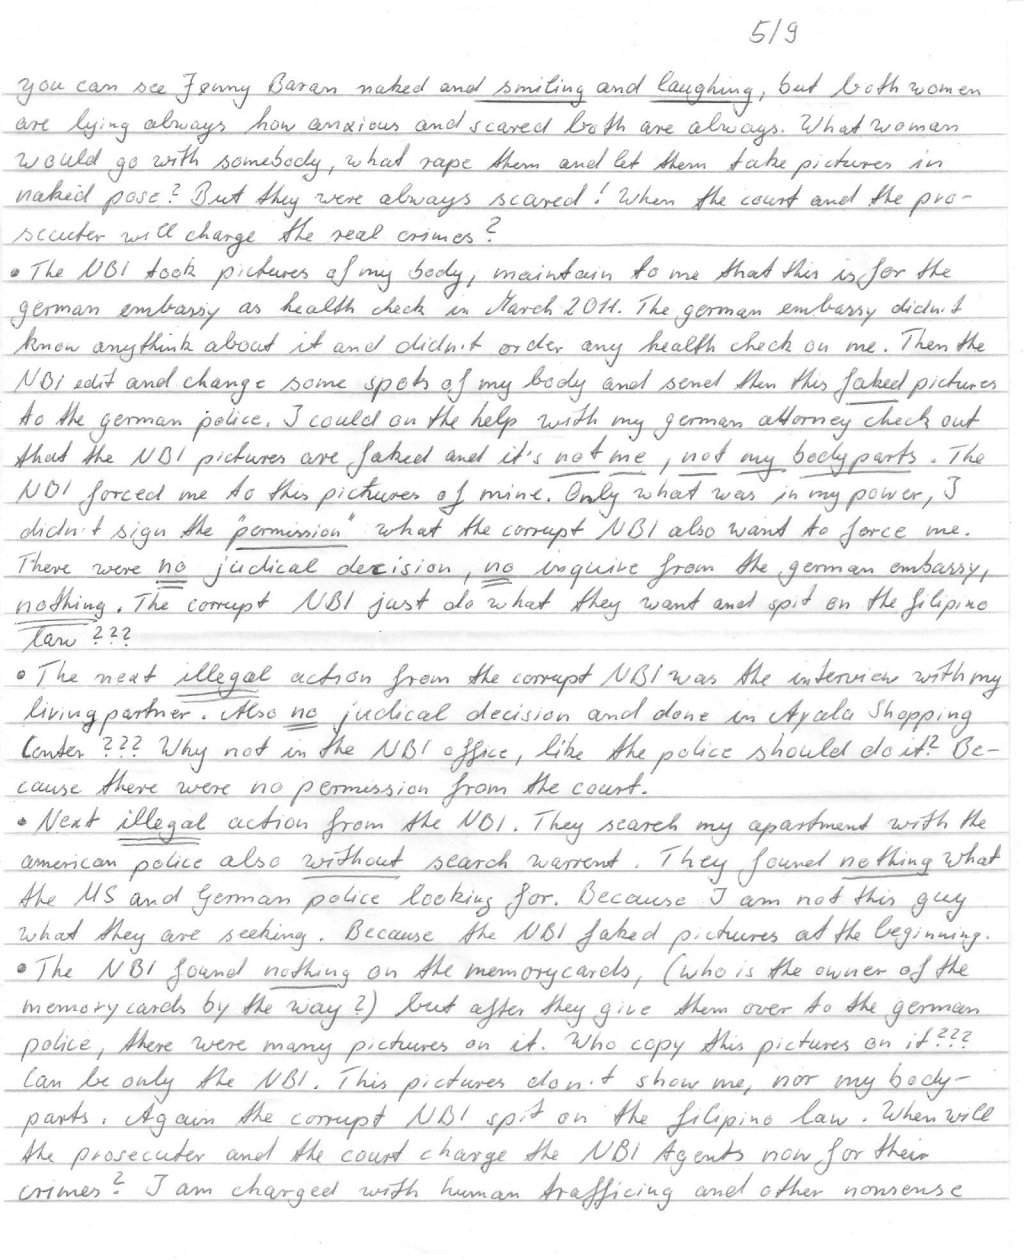 5/9
you can see Jenny Baran naked and smiling and laughing, but both women
are lying always how anxious and scared both are always. What woman
would go with somebody, what rape them and let them take pictures in
naked pose? But they were always scared! When the court and the pro-
secuter will charge the real crimes?
• The NBI took pictures of my body, maintain to me that this is for the
german embassy as health check in March 2011. The german embassy didn't
know anythink about it and didn't order any health check on me. Then the
NBI edit and change some spots of my body and send then this faked pictures
to the german police. I could on the help with my german attorney check out
that the NBI pictures are faked and it's not me, not my bodyparts. The
NBI forced me to this pictures of mine. Only what was in my power, I
didn't sign the "permission" what the corrupt NBI also want to force me.
There were no judical decision, no inquire from the german embassy,
nothing. The corrupt NBI just do what they want and spit on the filipino
law???
• The next illegal action from the corrupt NBI was the interview with my
livingpartner. Also no judical decision and done in Ayala Shopping
Center??? Why not in the NBI office, like the police should do it? Be-
cause there were no permission from the court.
• Next illegal action from the NBI. They search my apartment with the
american police also without search warrent. They found nothing what
the US and German police looking for. Because I am not this guy
what they are seeking. Because the NBI faked pictures at the beginning.
• The NBI found nothing on the memorycards, (who is the owner of the
memorycards by the way?) but after they give them over to the german
police, there were many pictures on it. Who copy this pictures on it???
Can be only the NBI. This pictures don't show me, nor my body-
parts. Again the corrupt NBI spit on the filipino law. When will
the prosecuter and the court charge the NBI Agents now for their
crimes? I am charged with human trafficing and other nonsense